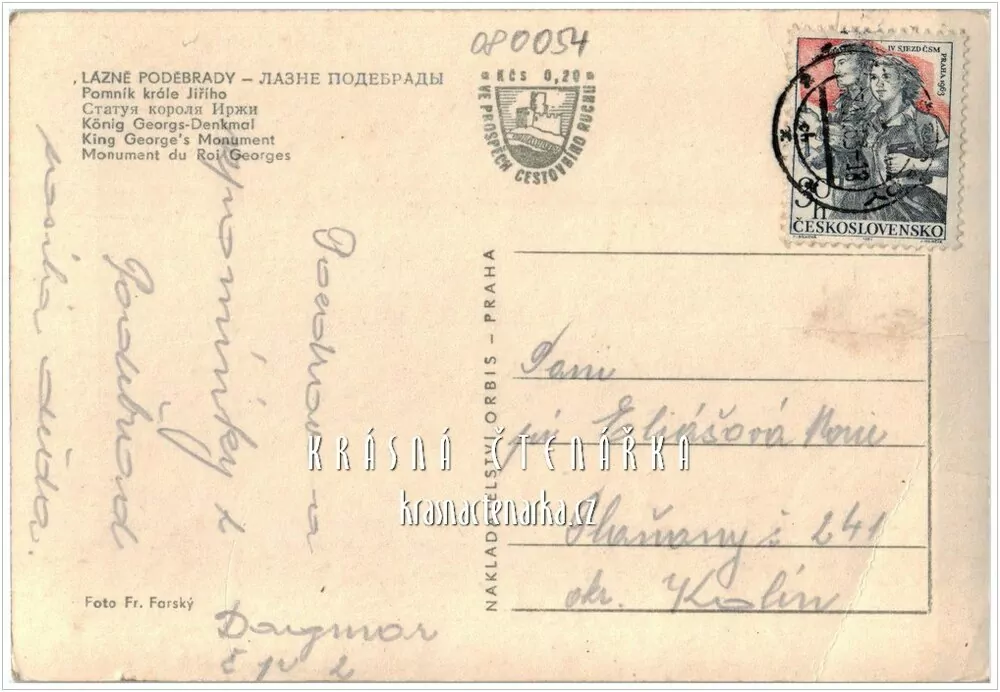 080054
LÁZNĚ PODĚBRADY – ЛАЗНЕ ПОДЕБРАДЫ
Pomník krále Jiřího
Статуя короля Иржи
König Georgs-Denkmal
King George's Monument
Monument du Roi Georges
Kčs 0,20
VE PROSPĚCH CESTOVNÍHO RUCHU
IV SJEZD ČSM
PRAHA 1963
90 h
ČESKOSLOVENSKO
Pozdrav a
vzpomínky z
Poděbrad
děda.
Dagmar
č p 2
NAKLADATELSTVÍ ORBIS – PRAHA
Paní
Eliášová
Plaňany 241
okr. Kolín
KRÁSNÁ ČTENÁŘKA
krasnactenarka.cz
Foto Fr. Farský